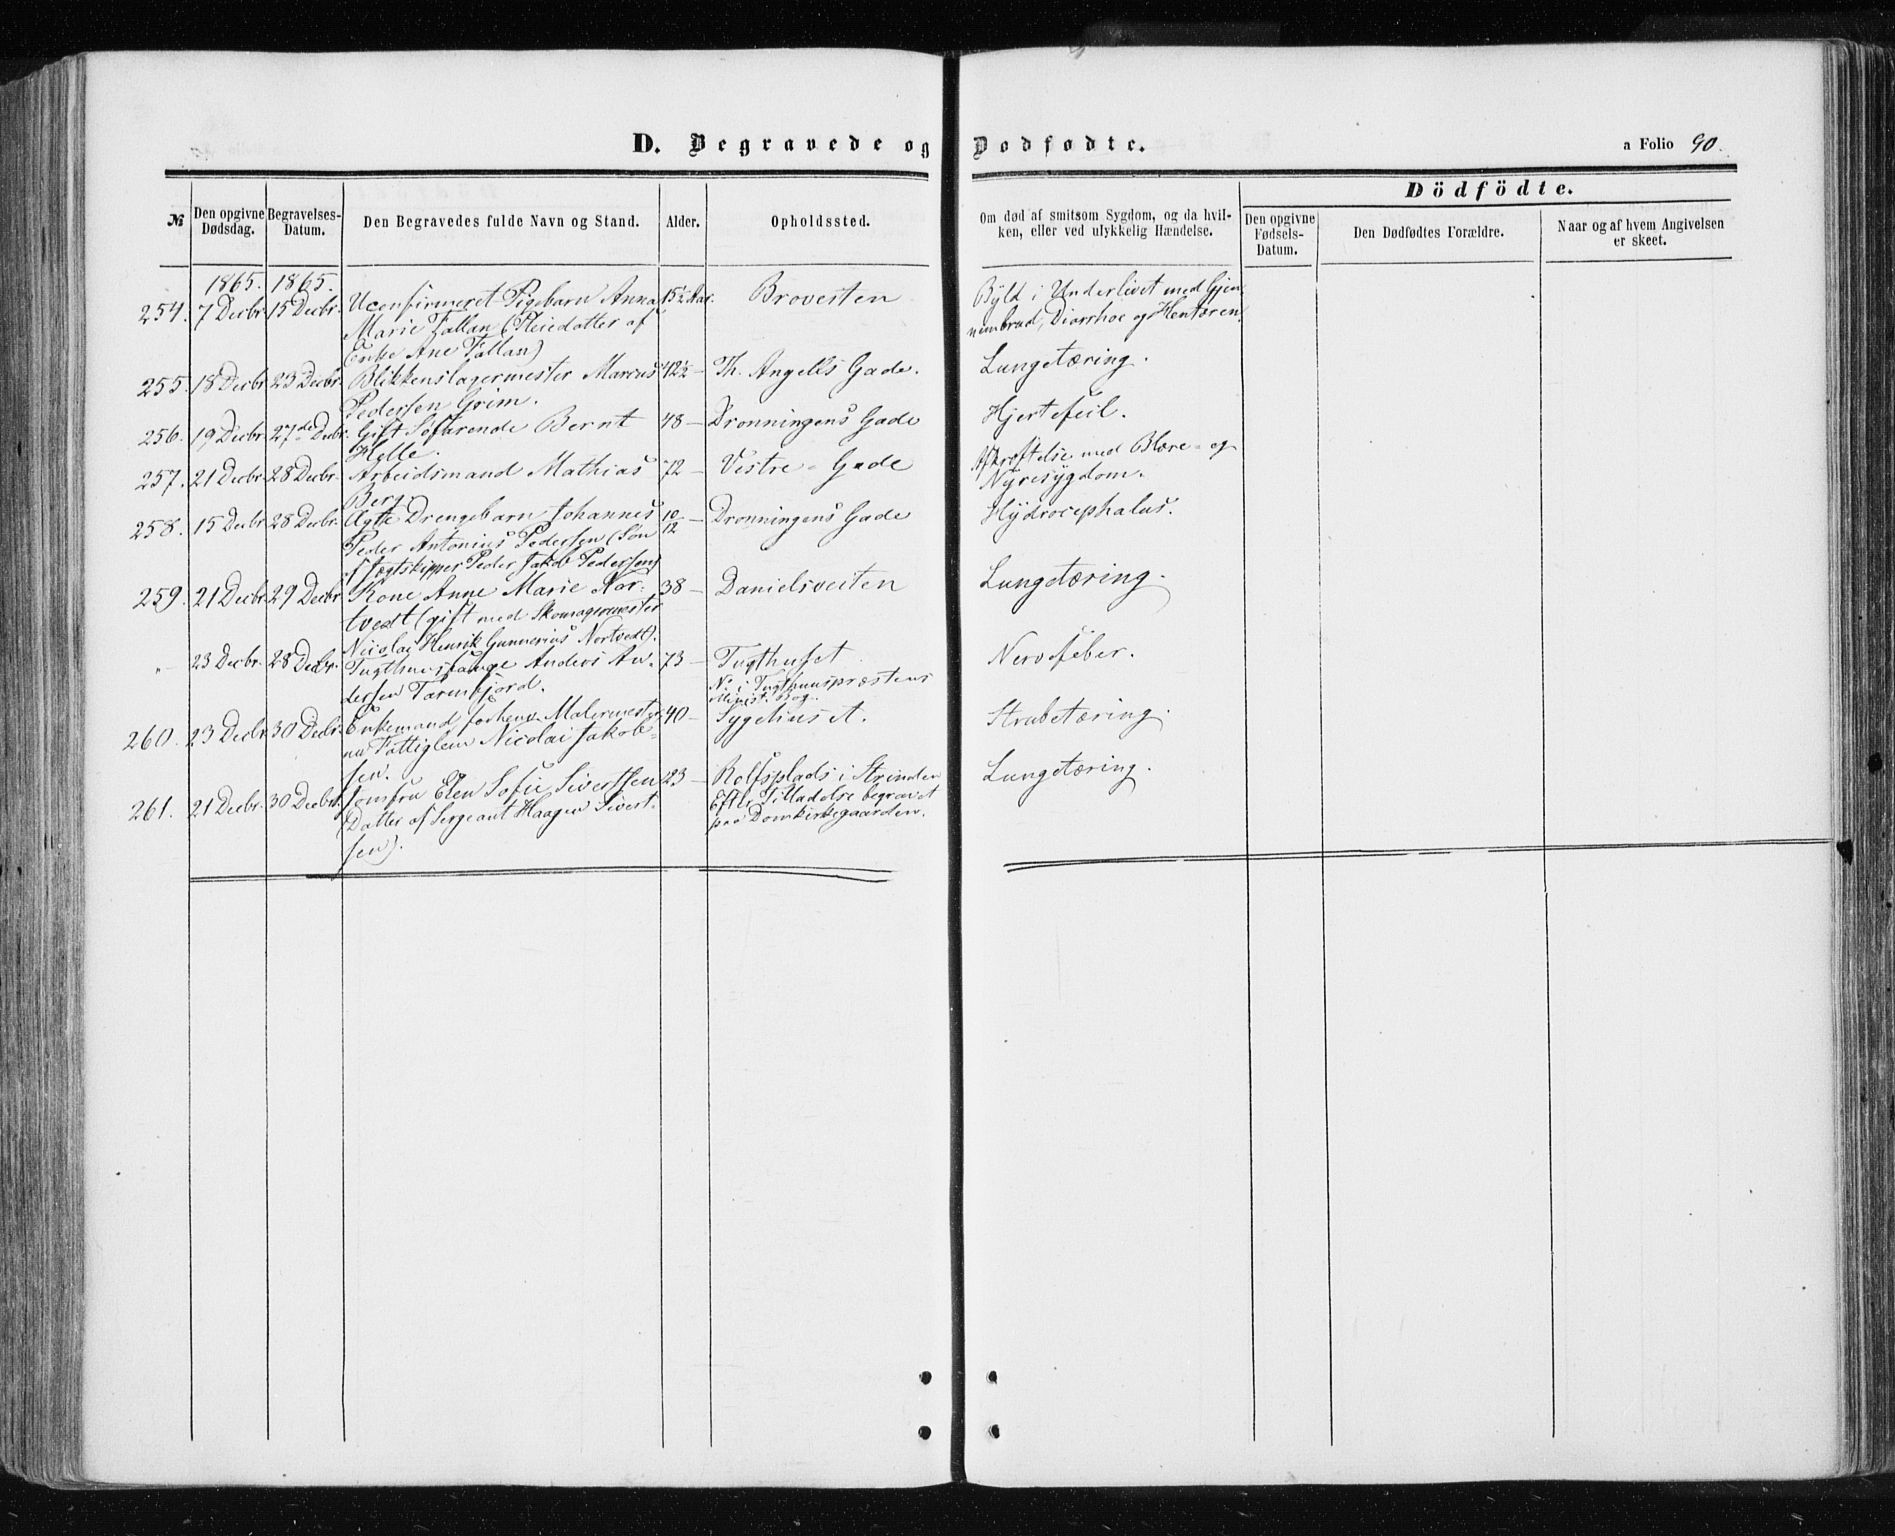 D. Begravede og Dødfødte.
a Folio 90.
№
Den opgivne Dødsdag.
Begravelses-Datum.
Den Begravedes fulde Navn og Stand.
Alder.
Opholdssted.
Om død af smitsom Sygdom, og da hvil-
ken, eller ved ulykkelig Hændelse.
Dödfödte.
Den opgivne Fødsels-Datum.
Den Dødfødtes Forældre.
Naar og af hvem Angivelsen
er skeet.
1865. 1865.
254. 7 Decbr. 15 Decbr. Uconfirmeret Pigebarn Anna 15½ Aar. Brovesten Byld i Underlivet med Gjen-
Marie Fallan (Pleiedatter af nembrud, Diarrhoe og
Enke Ane Fallan)
255. 18 Decbr. 23 Decbr. Blikkenslagermester Marcus 42½ — Th. Angells Gade. Lungetæring.
Pedersen Grim.
256. 19 Decbr. 27de Decbr. Gift Søfarende Bernt 48 — Dronningens Gade Hjertefeil.
Helle.
257. 21 Decbr. 28 Decbr. Arbeidsmand Mathias 72 — Vestre-Gade Afkræftelse med Blære- og
Berg. Nyresygdom.
258. 15 Decbr. 28 Decbr. Ægte Drengebarn Johannes 10/12 — Dronningens Gade Hydrocephalus.
Peder Antonius Pedersen (Søn
af Jægtskipper Peder Jakob Pedersen)
259. 21 Decbr. 29 Decbr. Kone Anne Marie Nor- 38 — Danielsveiten Lungetæring.
tvedt (gift med Skomagermester
Nicolai Henrik Gunnerius Nortvedt).
" 23 Decbr. 28 Decbr. Tugthuusfange Anders An- 73 — Tugthuset Nervefeber.
dersen Tarmfjord. No i Tugthuuspræstens
Minist. Bog.
260. 23 Decbr. 30 Decbr. Enkemand forhen. Malermester 40 — Sygehuset. Strubetæring.
nu Fattiglem Nicolai Jakob-
sen.
261. 21 Decbr. 30 Decbr. Jomfru Elen Sofie Sivertsen 23 — Rolfsplads i Strinden Lungetæring.
(Datter af Sergeant Haagen Sivert- Efter Tilladelse begravet
sen). paa Domkirkegaarden.